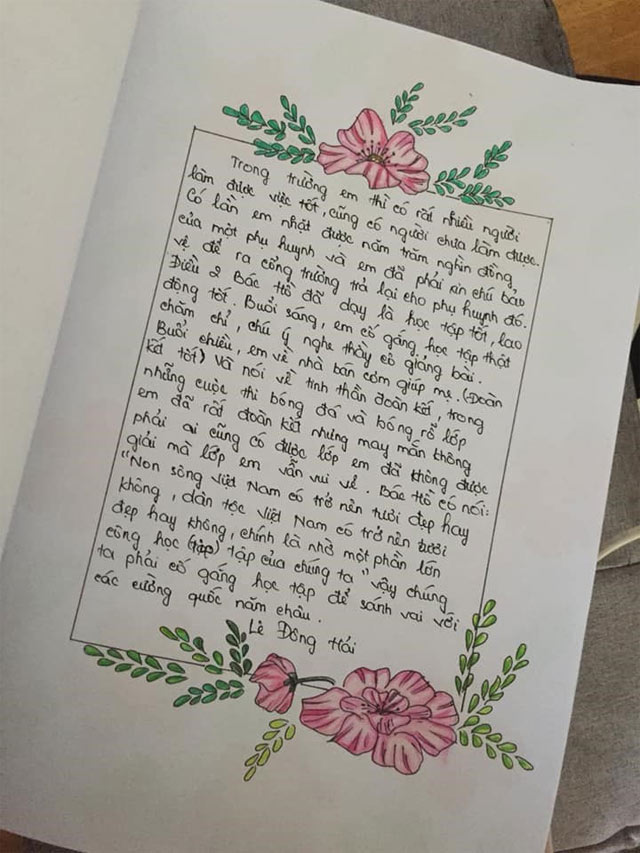 Trong trường em thì có rất nhiều người
làm được việc tốt, cũng có người chưa làm được.
Có lần em nhặt được năm trăm nghìn đồng
của một phụ huynh và em đã phải xin chú bảo
vệ để ra cổng trường trả lại cho phụ huynh đó.
Điều 2 Bác Hồ đã dạy là học tập tốt, lao
động tốt. Buổi sáng, em cố gắng học tập thật
chăm chỉ, chú ý nghe thầy cô giảng bài.
Buổi chiều, em về nhà bán cơm giúp mẹ. (Đoàn
kết tốt) Và nói về tinh thần đoàn kết, trong
những cuộc thi bóng đá và bóng rổ lớp
em đã rất đoàn kết nhưng may mắn không
phải ai cũng có được lớp em đã không được
giải mà lớp em vẫn vui vẻ. Bác Hồ có nói:
"Non sông Việt Nam có trở nên tươi đẹp hay
không, dân tộc Việt Nam có trở nên tươi
đẹp hay không, chính là nhờ một phần lớn
công học (tập) tập của chúng ta" vậy chúng
ta phải cố gắng học tập để sánh vai với
các cường quốc năm châu.
Lê Đông Hải